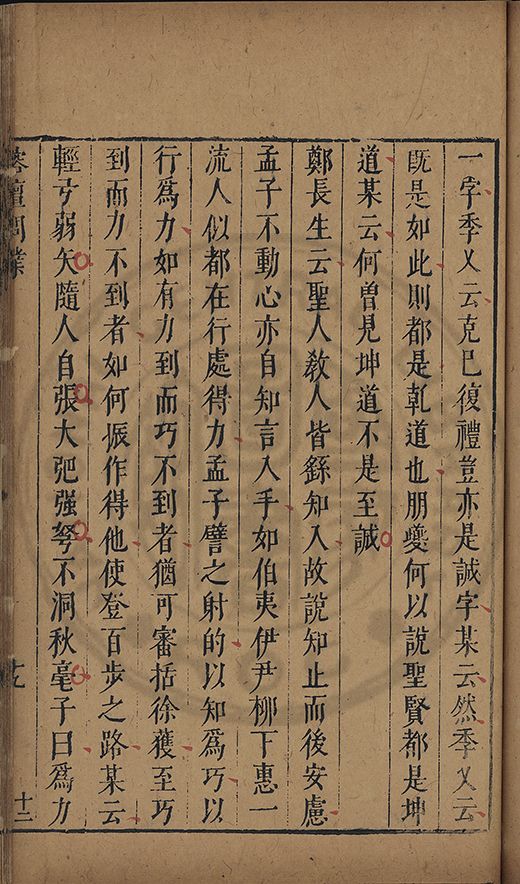 一字季乂云克巳復禮豈亦是誠字某云然季乂云
旣是如此則都是乹道也朋夔何以說聖賢都是坤
道某云何曽見坤道不是至誠
鄭長生云聖人敎人皆繇知入故說知止而後安慮
孟子不動心亦自知言入手如伯夷伊尹柳下惠一
流人似都在行處得力孟子譬之射的以知爲巧以
行爲力如有力到而巧不到者猶可審括徐獲至巧
到而力不到者如何振作得他使登百步之路某云
輕弓弱矢隨人自張大弝强弩不洞秋毫子曰爲力
榕壇問業
十二